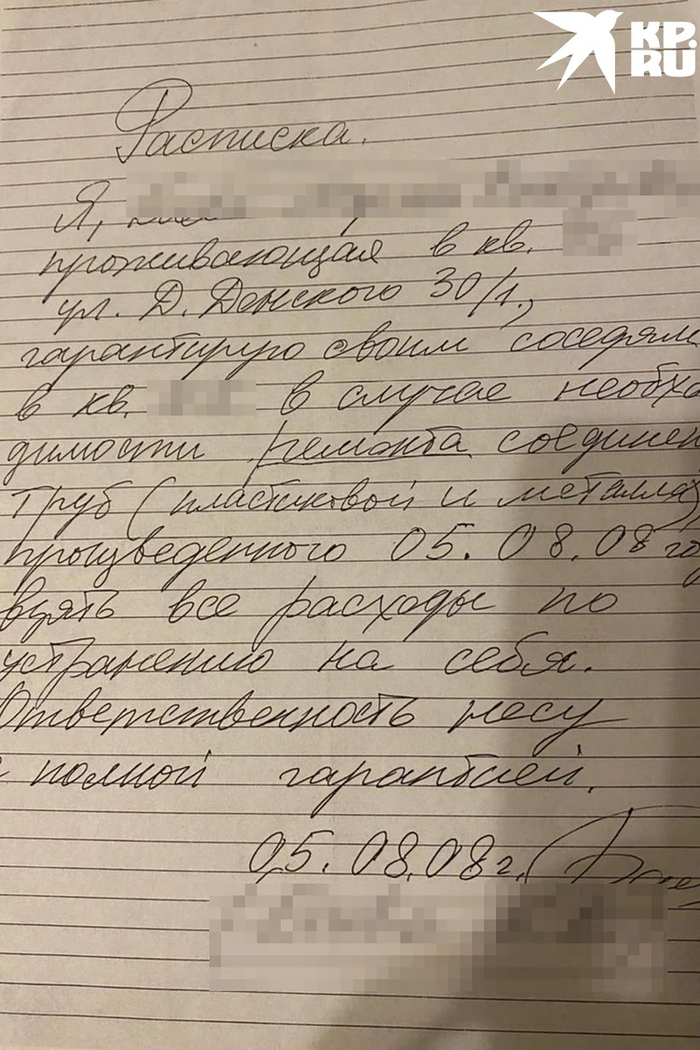 KP.
RU
Расписка.
Я,
проживающая в кв.
ул. Д. Донского 30/1.,
гарантирую своим соседям
в кв. в случае необхо
димости ремонта соединен
труб (пластиковой и металла)
произведенного 05.08.08 го
взять все расходы по
устранению на себя.
Ответственность несу
с полной гарантией.
05.08.08 г.